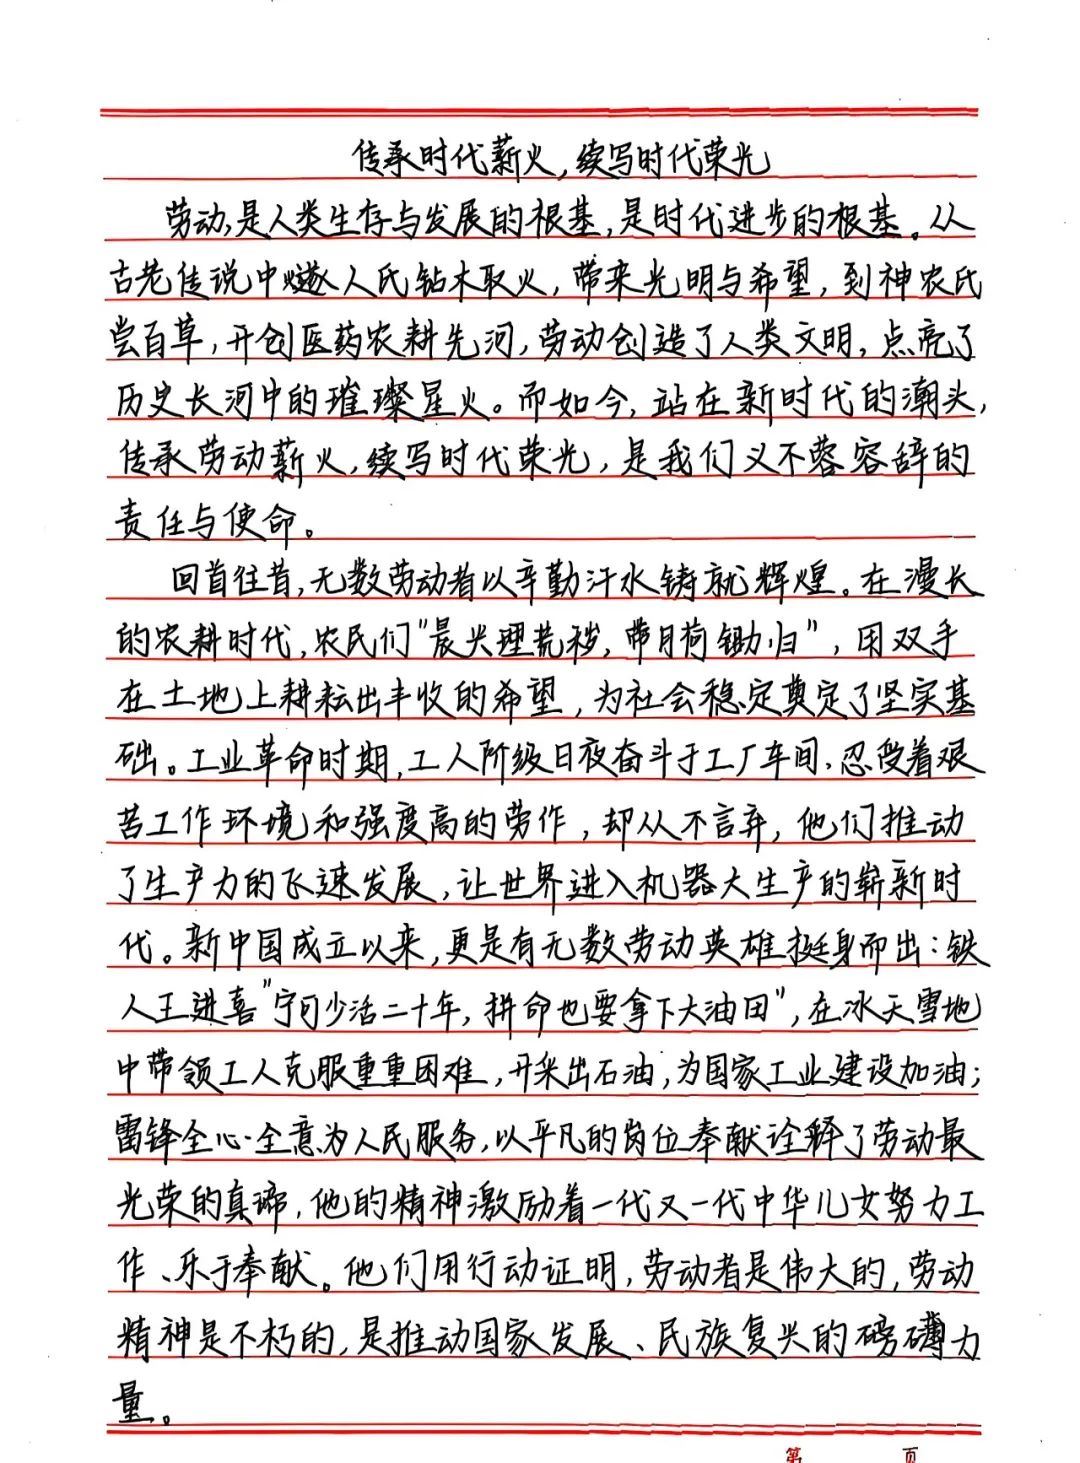 传承时代薪火,续写时代荣光
劳动,是人类生存与发展的根基,是时代进步的根基。从
古老传说中燧人氏钻木取火,带来光明与希望,到神农氏
尝百草,开创医药农耕先河,劳动创造了人类文明,点亮了
历史长河中的璀璨星火。而如今,站在新时代的潮头,
传承劳动薪火,续写时代荣光,是我们义不蓉容辞的
责任与使命。
回首往昔,无数劳动者以辛勤汗水铸就辉煌。在漫长
的农耕时代,农民们"晨兴理荒秽,带月荷锄归",用双手
在土地上耕耘出丰收的希望,为社会稳定奠定了坚实基
础。工业革命时期,工人阶级日夜奋斗于工厂车间,忍受着艰
苦工作环境和强度高的劳作,却从不言弃,他们推动
了生产力的飞速发展,让世界进入机器大生产的崭新时
代。新中国成立以来,更是有无数劳动英雄挺身而出:铁
人王进喜"宁可少活二十年,拼命也要拿下大油田",在冰天雪地
中带领工人克服重重困难,开采出石油,为国家工业建设加油;
雷锋全心全意为人民服务,以平凡的岗位奉献诠释了劳动最
光荣的真谛,他的精神激励着一代又一代中华儿女努力工
作、乐于奉献。他们用行动证明,劳动者是伟大的,劳动
精神是不朽的,是推动国家发展、民族复兴的磅礴力
量。
第 页